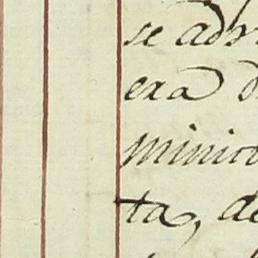 se adv
era d
minico
ta, de